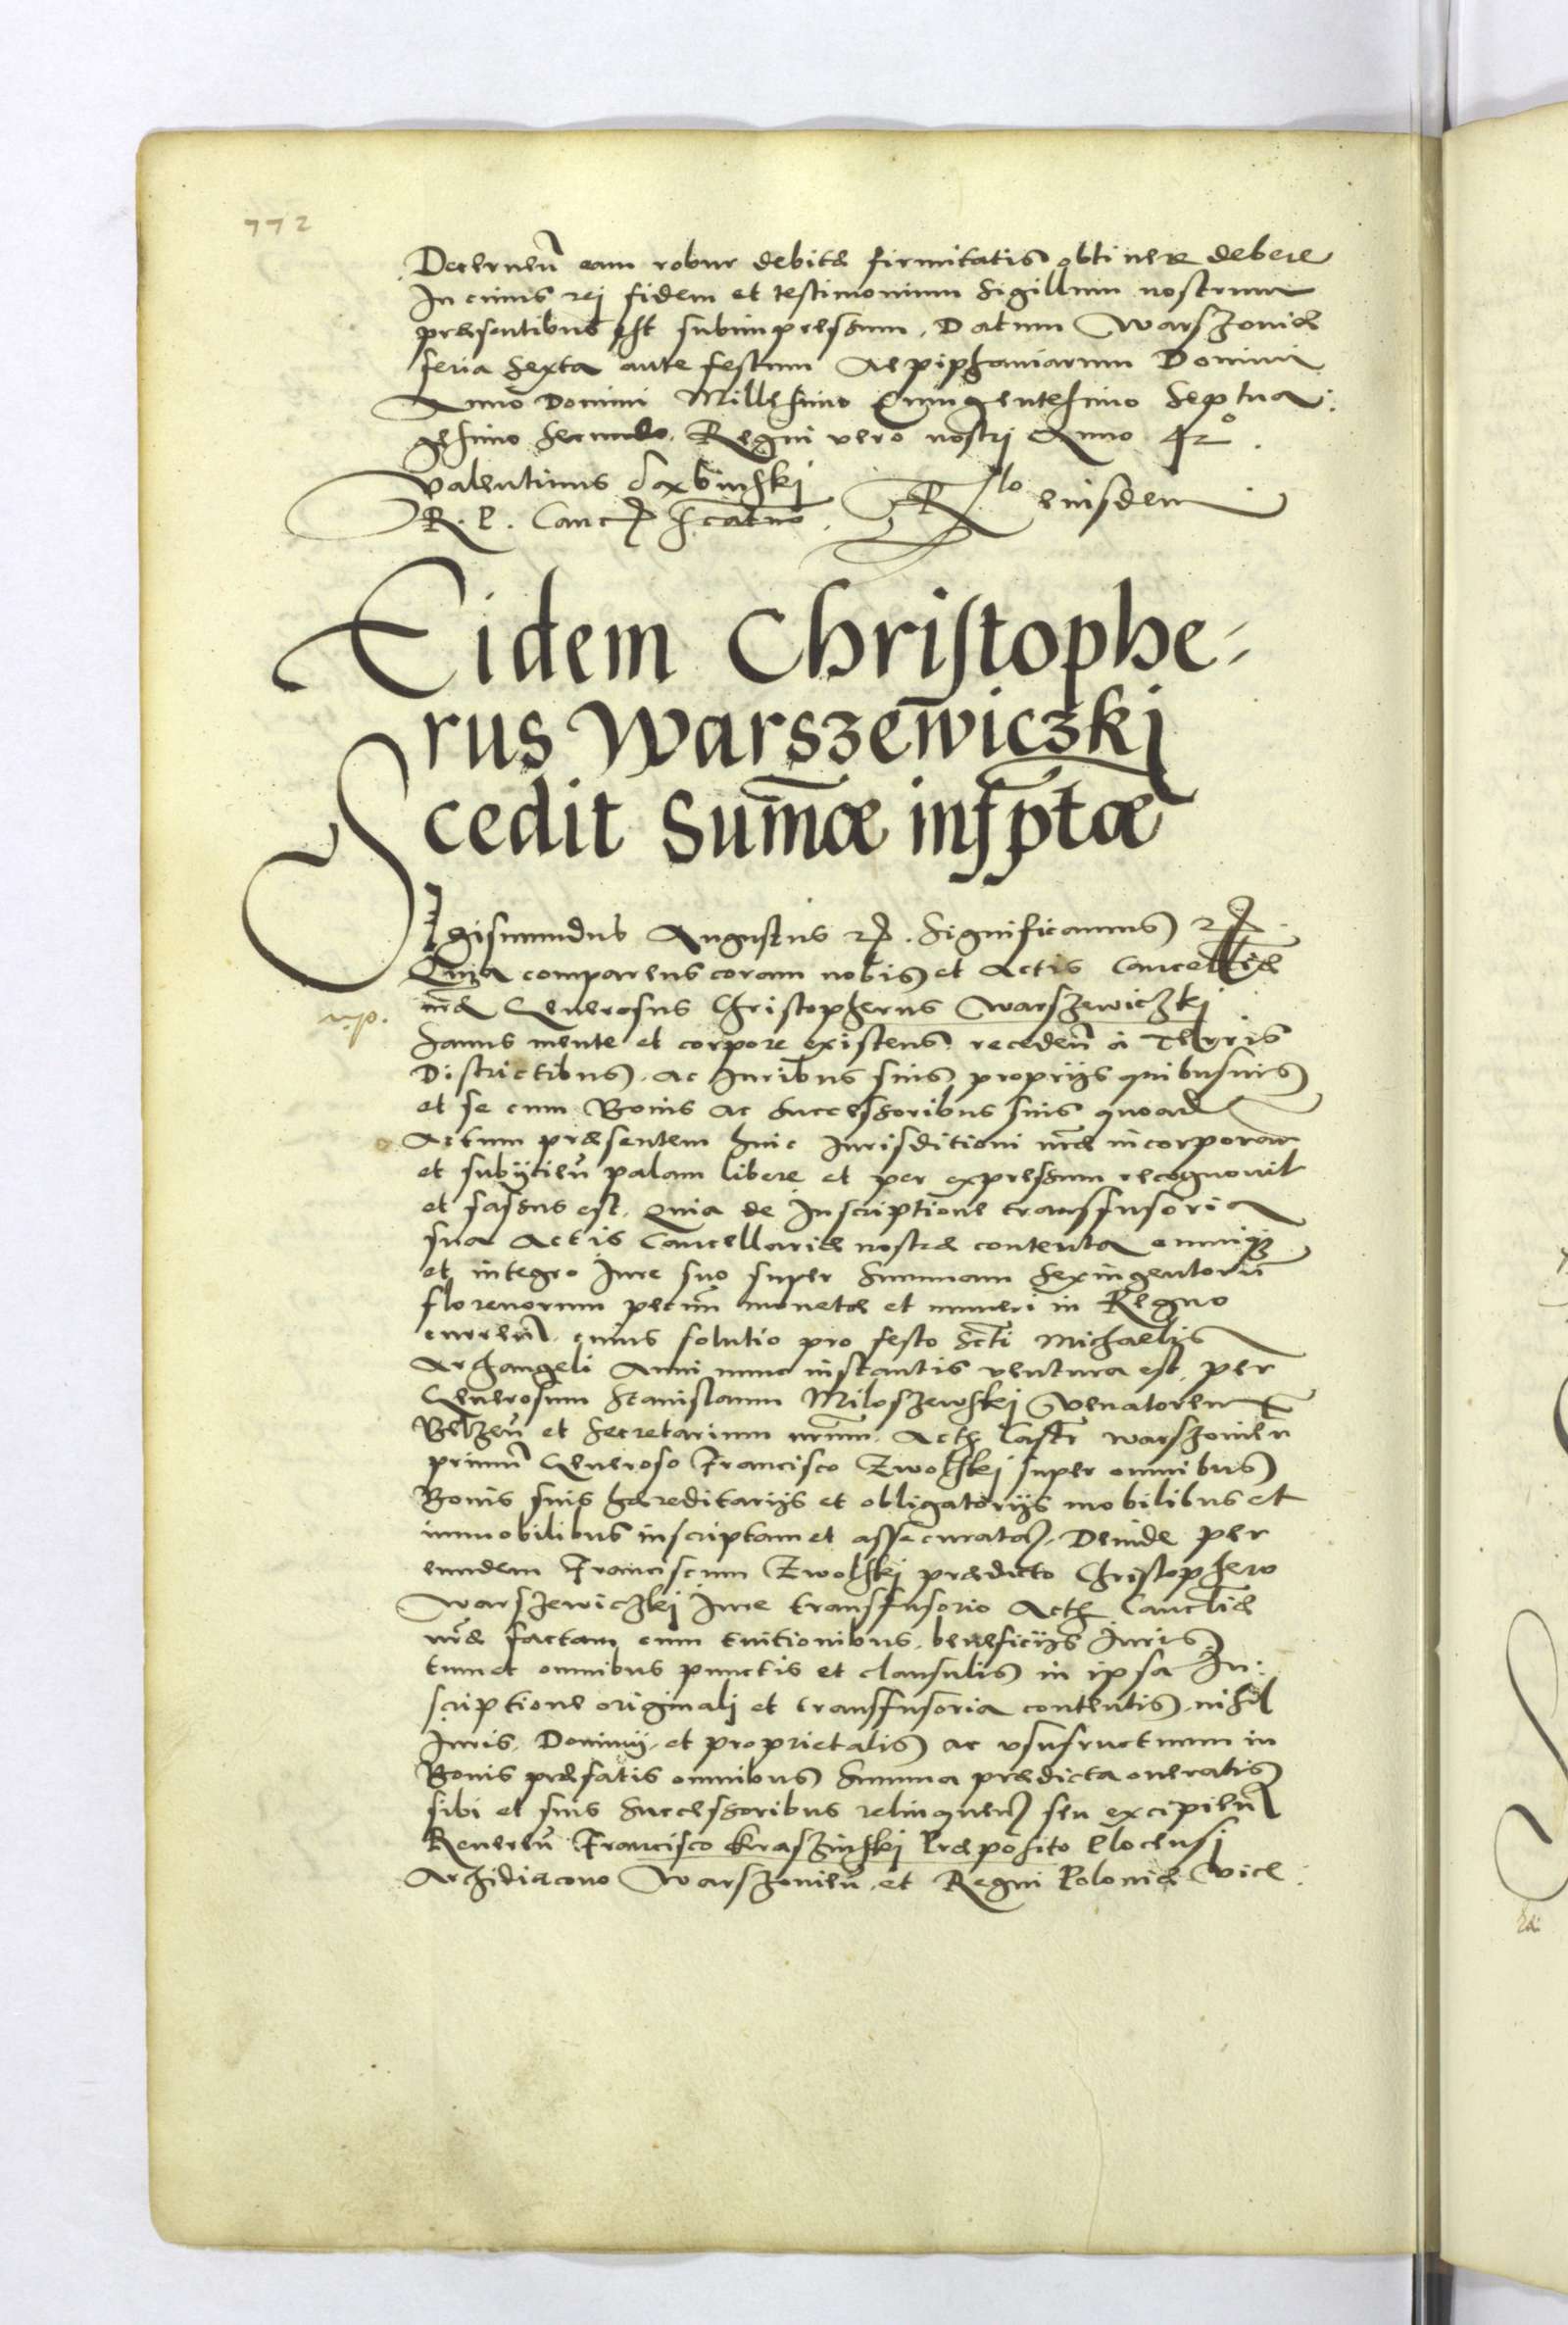 772
Decernen̄ eam robur debitæ firmitatis obtinere debere
In cuius rej fidem et testimonium Sigillum nostrum
præsentibus est subimpressum. Datum Warszoviæ
feria Sexta ante festum Aepiphaniarum Domini
Anno Domini Millesimo Quingentesimo Septua:
gesimo Secundo. Regni vero nostrj Anno 42°.
Valentinus Dæbinskj
R. P. Canc̄ Scatuo. Rlo eiusdem
Eidem Christophe-
rus Warszewiczkj
cedit Sum̄æ insc̄ptæ
Sigismundus Augustus etc. Significamus etc.
Quia comparens coram nobis et Actis Cancell̄riæ
n̄ræ Generosus Christopherus Warszewiczkj
n.p.
Sanus mente et corpore existens receden̄ à Terris
Districtibus. ac Iuribus suis proprijs quibusuis
et se cum Bonis ac Successoribus suis quoad
Actum præsentem huic Iurisditioni n̄ræ incorporan̄
et subijcien̄ palam libere et per expressum recognouit
et fassus est. Quia de Inscriptione transfusoria
sua Actis Cancellariæ nostræ contenta omniq3
et integro Iure suo super Summam Sexingentorum̄
florenorum pecun̄ monetæ et numeri in Regno
curren̄. cuius solutio pro festo Sc̄ti Michaelis
Archangeli Anni nunc instantis ventura est, per
Generosum Stanislaum Miloszewskj Venatorem
Belzen̄ et Secretarium nr̄um. Actis Castr̄ Warszouien̄
primum̄ Generoso Francisco Zwolskj super omnibus
Bonis suis hæreditarijs et obligatorijs mobilibus et
immobilibus inscriptam et assecuratam. Deinde per
eundem Franciscum Zwolskj prædicto Christophero
Warszewiczkj Iure transfusorio Actis Canc̄lriæ
n̄ræ factam cum euitionibus. beneficijs Iuris
tum et omnibus punctis et clausulis in ipsa In:
scriptione originalj et transfusoria contentis. nihil
Iuris. Dominij. et proprietatis ac vsusfructuum in
Bonis præfatis omnibus Summa prædicta oneratis
sibi et suis Successoribus relinquen̄ seu excipien̄
Reueren̄ Francisco Kraszinskj Præposito Plocensj
Archidiacono Warszouien̄. et Regni Poloniæ Vice